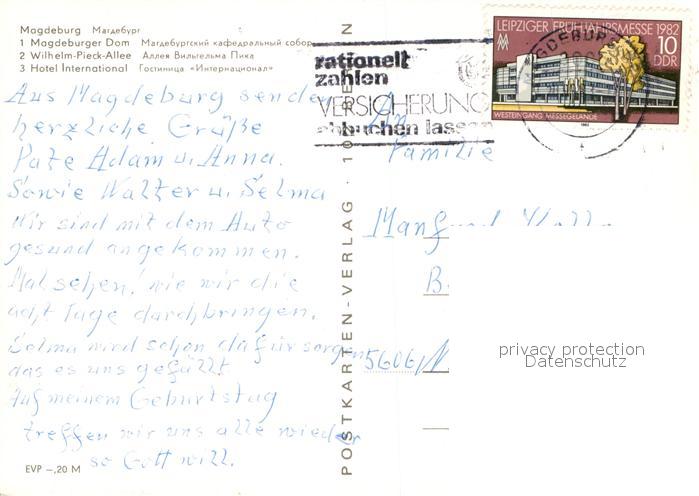 Magdeburg Магдебург
1 Magdeburger Dom Магдебургский кафедральный собор
2 Wilhelm-Pieck-Allee Аллея Вильгельма Пика
3 Hotel International Гостиница «Интернационал»
Aus Magdeburg sende
herzliche Grüße
Pate Adam u. Anna.
Sowie Walter u. Selma
Wir sind mit dem Auto
gesund angekommen.
Mal sehen, wie wir die
acht Tage durchbringen.
Selma wird schon dafür sorgen
das es uns gefällt.
Auf meinem Geburtstag
treffen wir uns alle wieder
so Gott will.
EVP –,20 M
POSTKARTEN-VERLAG
rationell
zahlen
VERSICHERUNG
abbuchen lassen
MAGDEBURG
LEIPZIGER FRÜHJAHRSMESSE 1982
10
DDR
WESTEINGANG MESSEGELÄNDE
An
Familie
Manf
B.
5606
privacy protection
Datenschutz